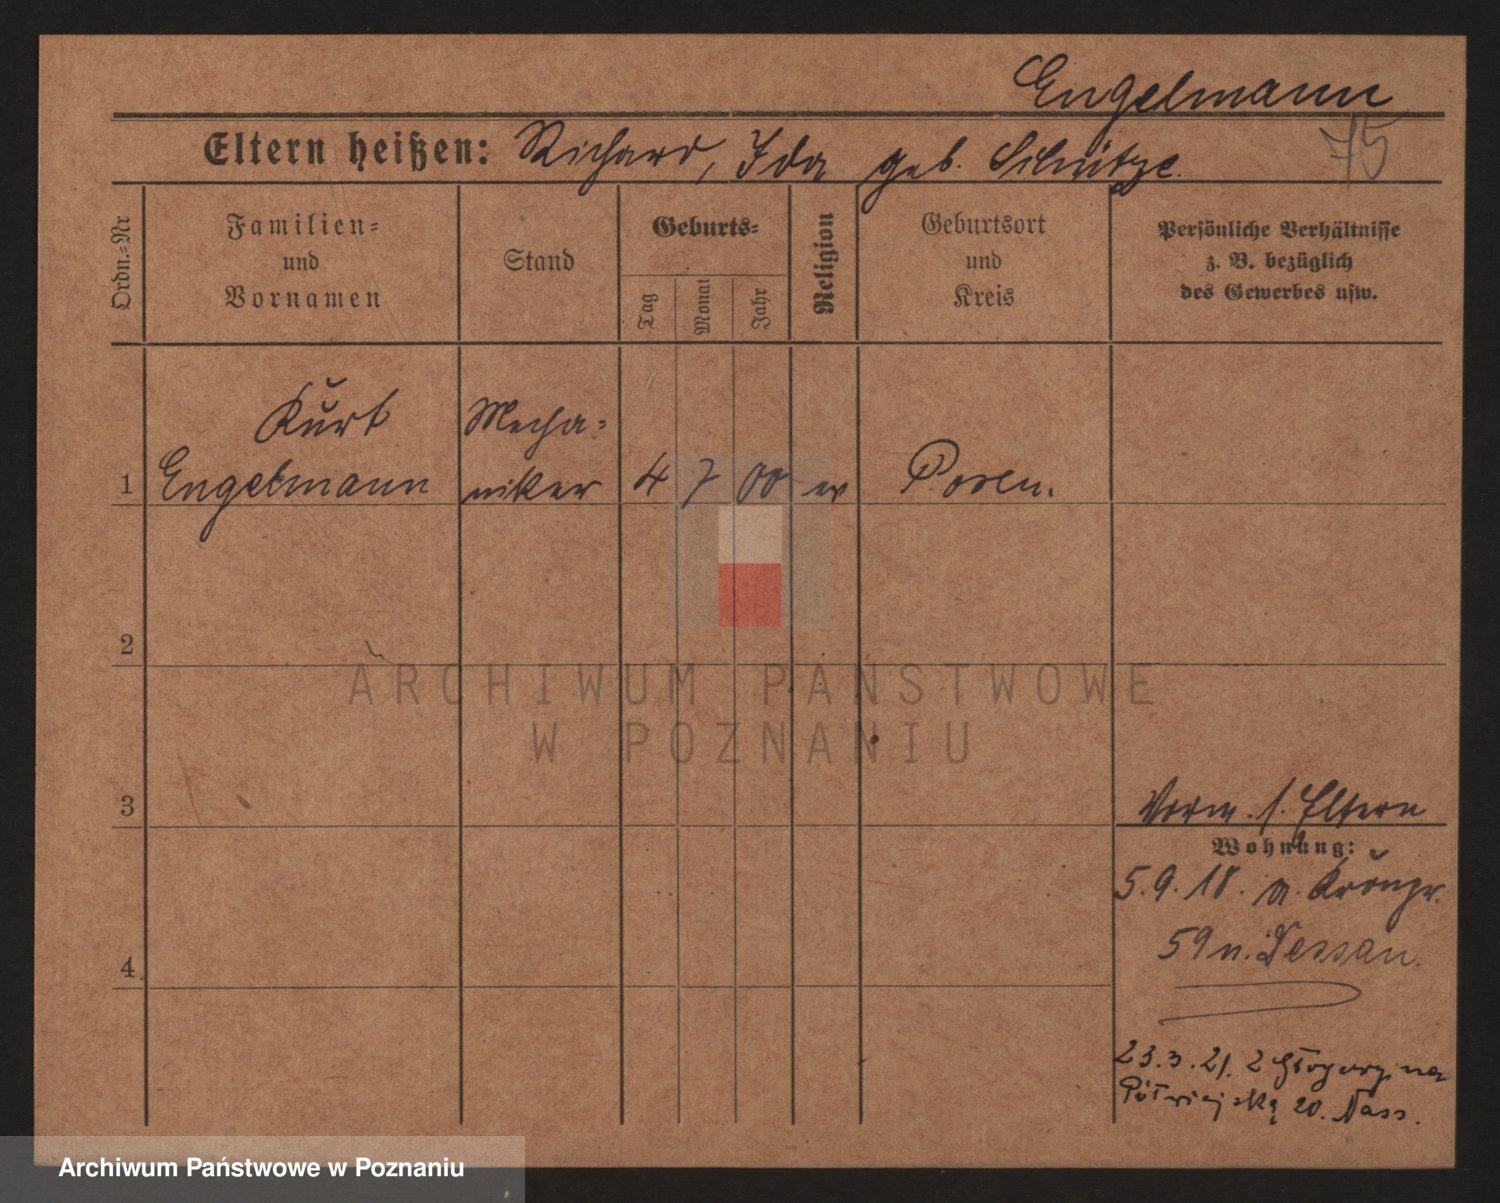 Engelmann
75
Eltern heißen: Richard, Ida geb. Schütze.
Ordn.=Nr
Familien=
und
Vornamen
Stand
Geburts=
Tag
Monat
Jahr
Religion
Geburtsort
und
Kreis
Persönliche Verhältnisse
z. B. bezüglich
des Gewerbes usw.
Kurt
Mecha=
1 Engelmann niker 4 7 00 ev Posen.
2
ARCHIWUM PAŃSTWOWE
W POZNANIU
3
Vorm. s. Eltern
Wohnung:
5.9.18. n. Kronpr.
59 n. Dessau.
4
23.3.21. z Głogowy na
20. Nass.
Archiwum Państwowe w Poznaniu